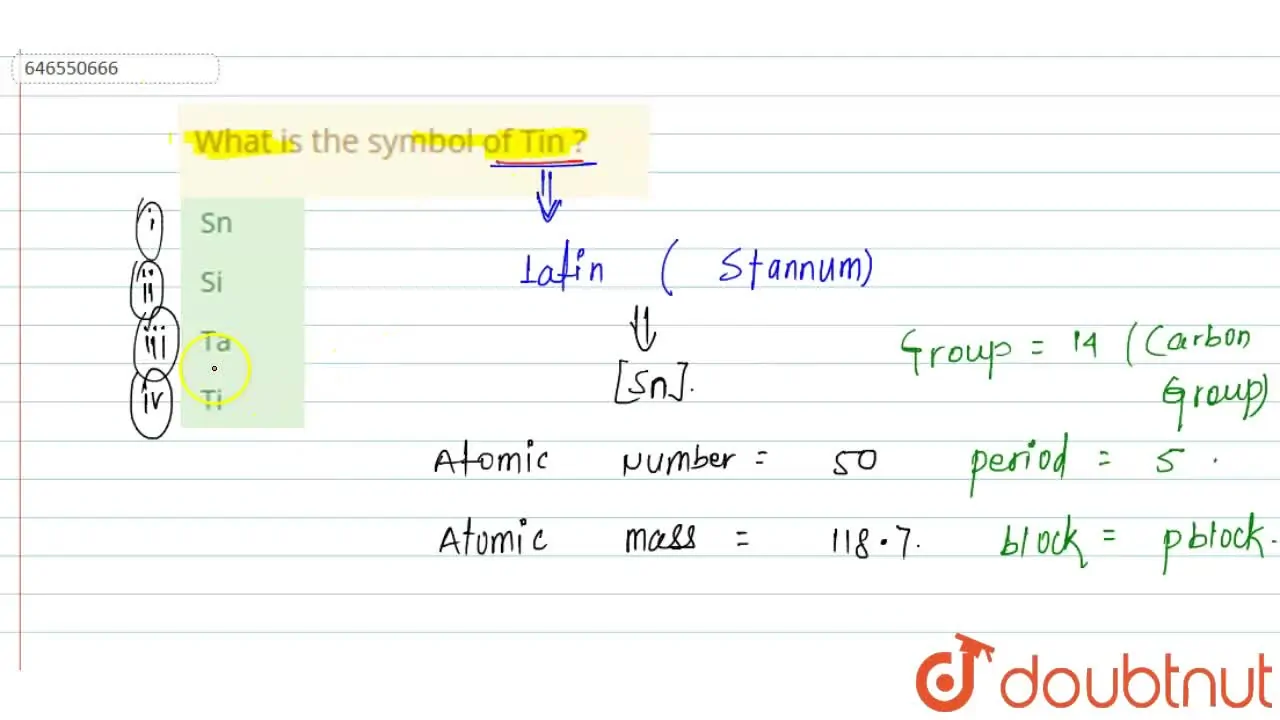 646550666
What is the symbol of Tin ?
i Sn
ii Si
iii Ta
iv Ti
Latin ( Stannum)
[Sn].
Group = 14 (Carbon
Group)
Atomic Number = 50
period = 5 .
Atomic mass = 118.7.
block = p block.
doubtnut